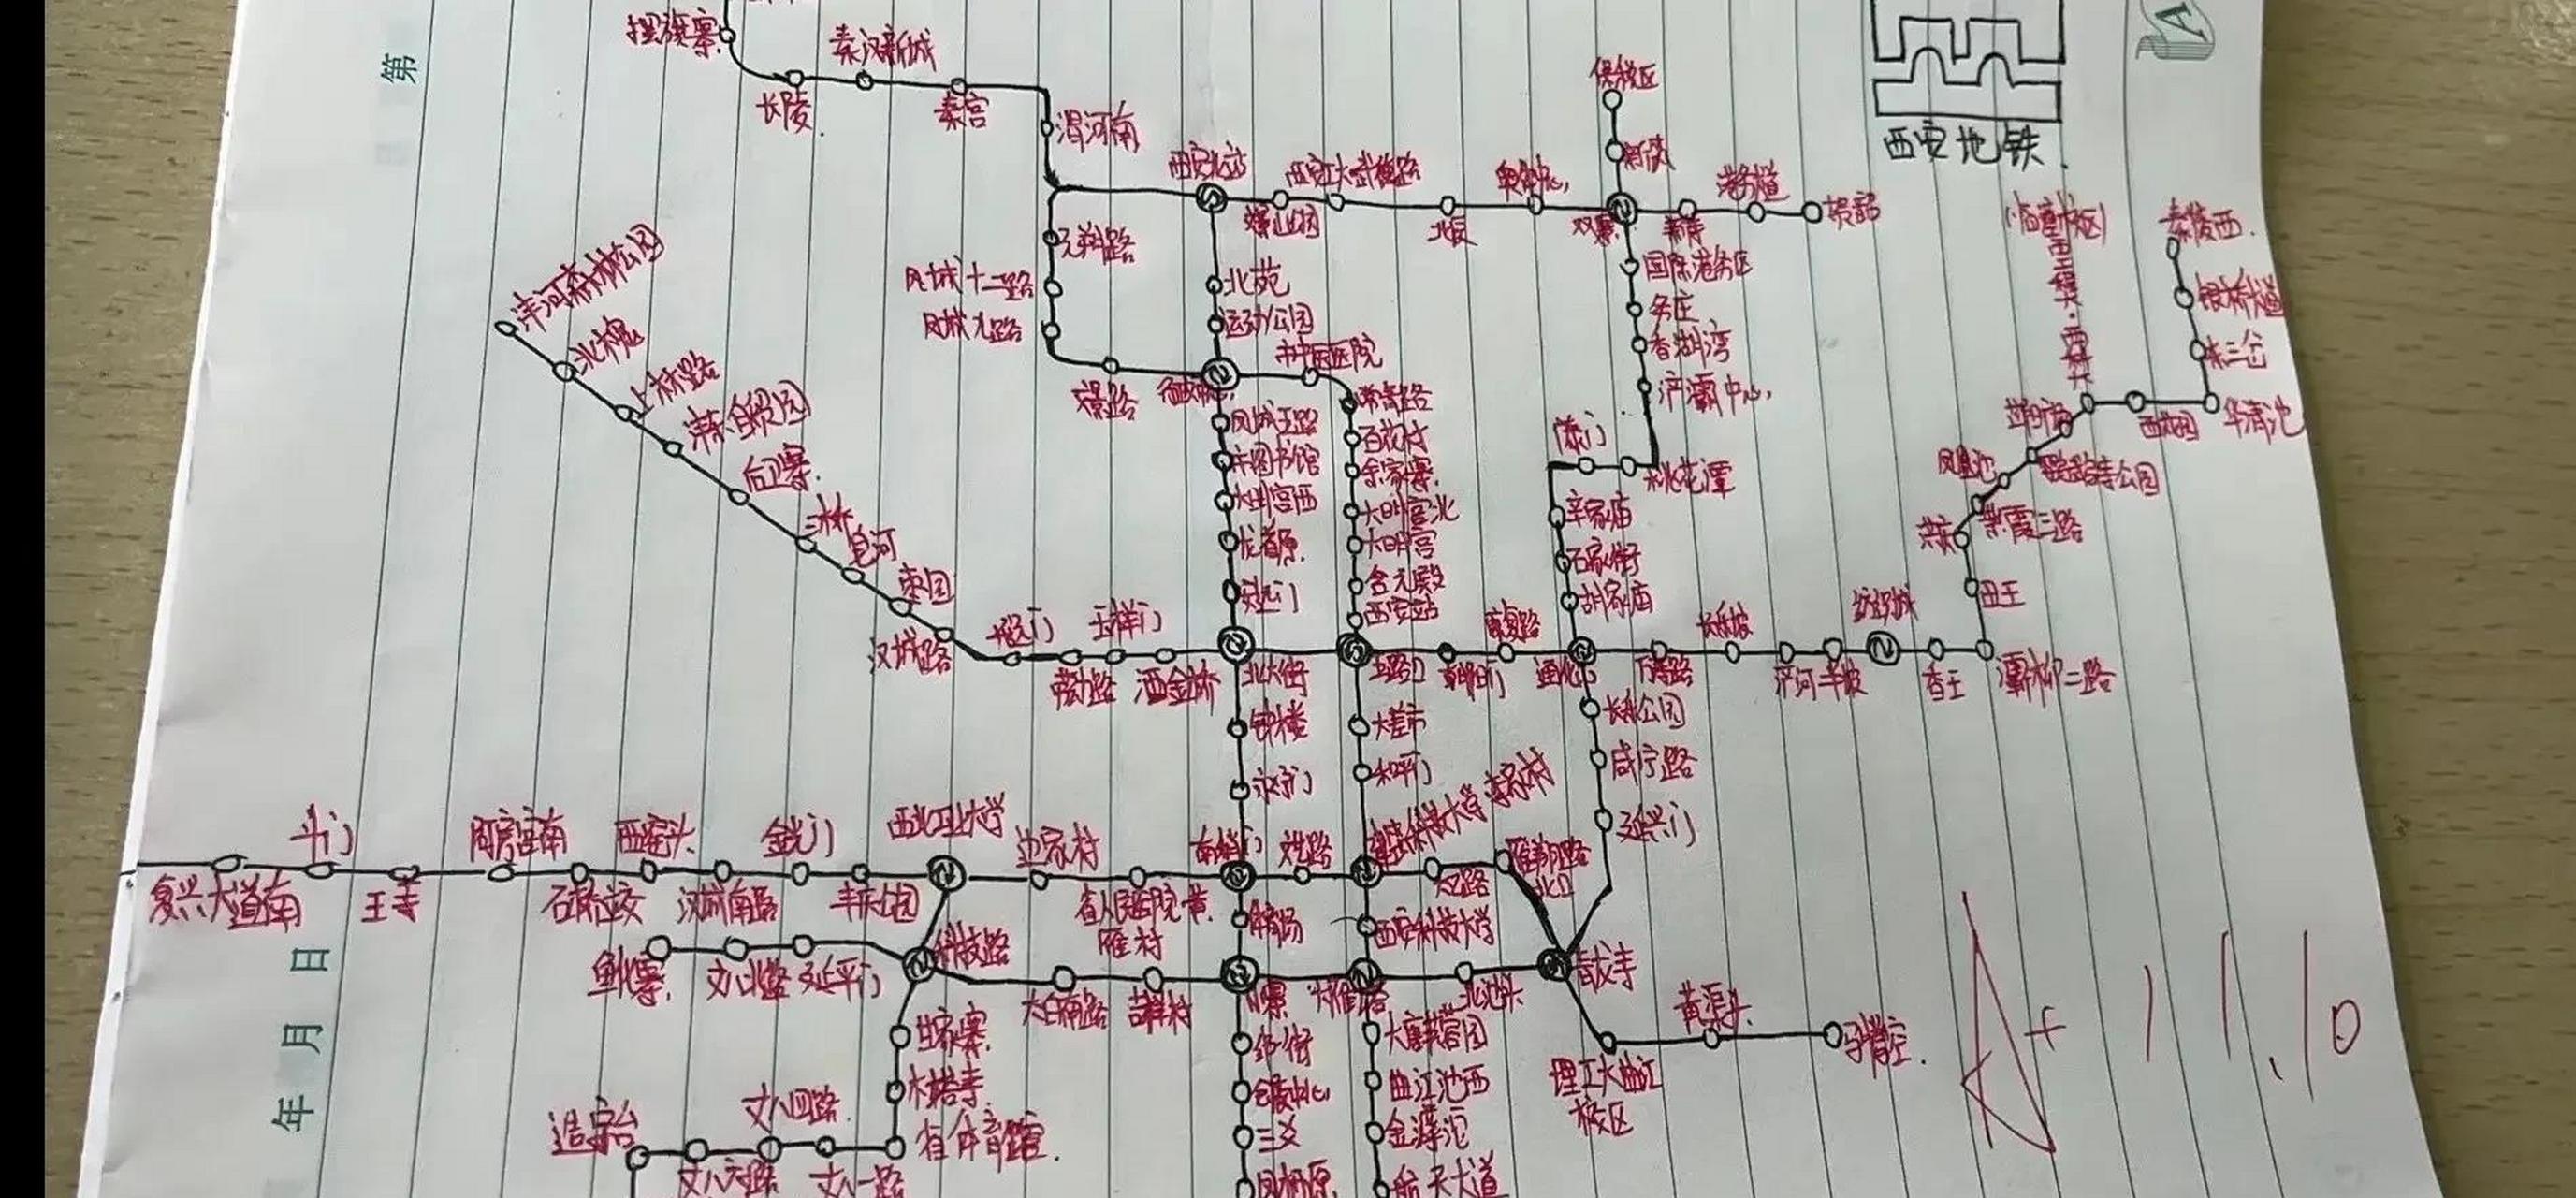 第
摆旗寨
长陵
秦汉新城
秦宫
渭河南
西安地铁
保税区
双寨
贺韶
西安北站
元朔路
凤城十二路
凤城九路
文景路
北苑
运动公园
市中医医院
常青路
百花村
余家寨
大明宫北
大明宫
含元殿
西安站
凤城五路
市图书馆
大明宫西
龙首原
安远门
国际港务区
务庄
香湖湾
浐灞中心
桃花潭
辛家庙
石家街
胡家庙
秦陵西
银桥大道
东三岔
华清池
芷阳广场
凤凰池
紫霞三路
洪庆
田王
沣河森林公园
北槐
上林路
沣东自贸园
后卫寨
三桥
皂河
枣园
汉城路
玉祥门
劳动路
洒金桥
北大街
五路口
朝阳门
康复路
通化门
万寿路
长乐坡
浐河
半坡
纺织城
香王
灞柳二路
钟楼
永宁门
大差市
和平门
长乐公园
咸宁路
延兴门
复兴大道南
斗门
王寺
阿房宫南
石桥立交
西窑头
汉城南路
金光门
丰庆公园
西北工业大学
边家村
省人民医院·黄
雁村
南稍门
文艺路
建筑科技大学·李家村
太乙路
雁翔路
北口
体育场
西安科技大学
鱼化寨
丈八北路
延平门
科技路
大白南路
吉祥村
小寨
大雁塔
北池头
青龙寺
甘家寨
木塔寺
省体育馆
丈八一路
丈八四路
丈八六路
造字台
纬一街
会展中心
三爻
凤栖原
大唐芙蓉园
曲江池西
金滹沱
航天大道
理工大曲江
校区
黄渠头
马腾空
A+ 11.10
年 月 日